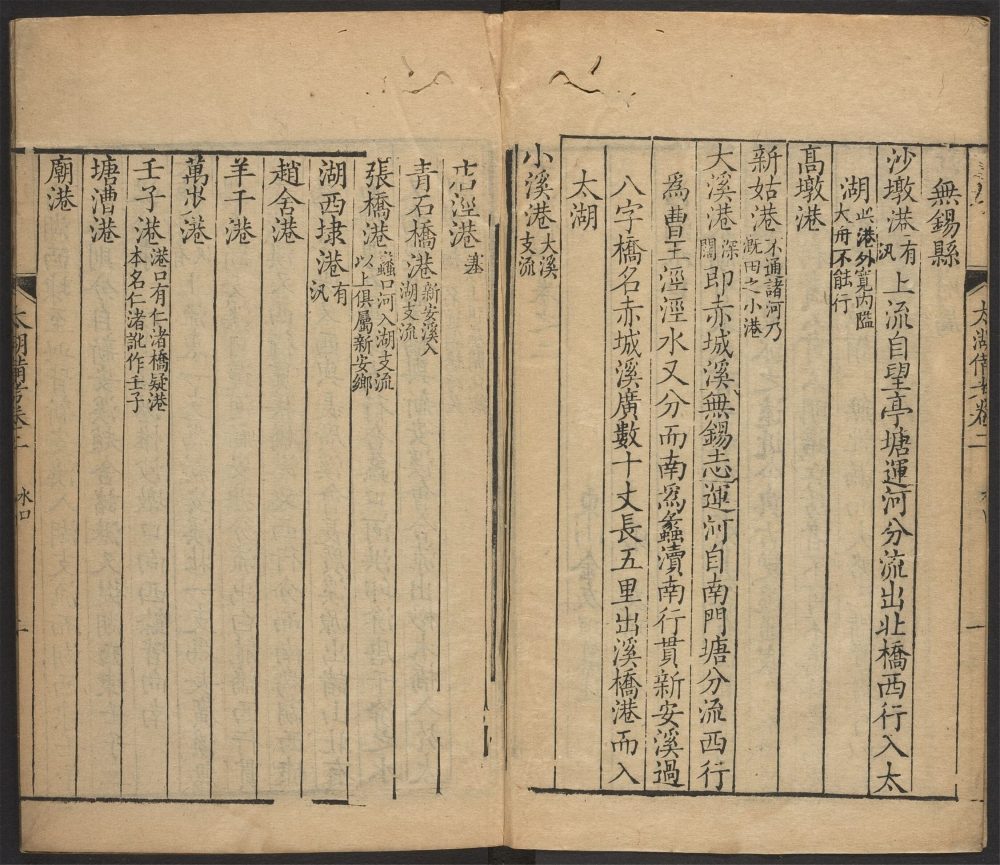 太湖備考卷二
一
無錫縣
沙墩港有汛上流自望亭塘運河分流出北橋西行入太
湖此港外寬内隘大舟不能行
高墩港
新姑港不通諸河乃漑田之小港
大溪港深闊即赤城溪無錫志運河自南門塘分流西行
爲曹王涇涇水又分而南爲蠡瀆南行貫新安溪過
八字橋名赤城溪廣數十丈長五里出溪橋港而入
太湖
小溪港大溪支流
涇港
青石橋港新安溪入湖支流
張橋港蠡口河入湖支流以上俱屬新安鄉
湖西埭港有汛
趙舍港
羊干港
萬港
壬子港港口有仁渚橋疑港本名仁渚訛作壬子
塘漕港
廟港
太湖備考卷二
水口